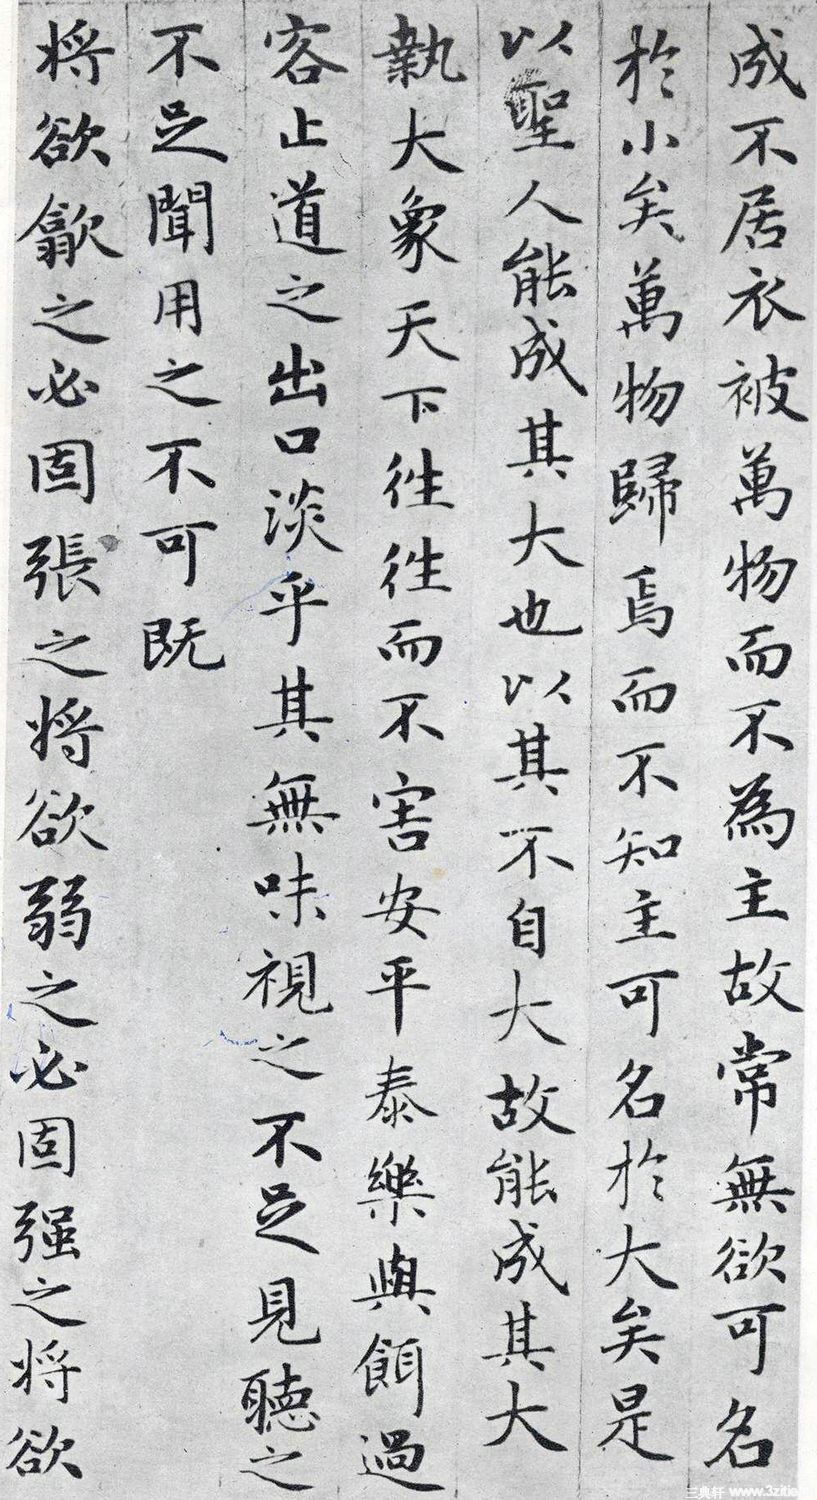 成不居衣被萬物而不為主故常無欲可名
於小矣萬物歸焉而不知主可名於大矣是
以聖人能成其大也以其不自大故能成其大
執大象天下往往而不害安平泰樂與餌過
客止道之出口淡乎其無味視之不足見聽之
不足聞用之不可既
將欲歙之必固張之將欲弱之必固强之將欲
三典轩 www.3zitie